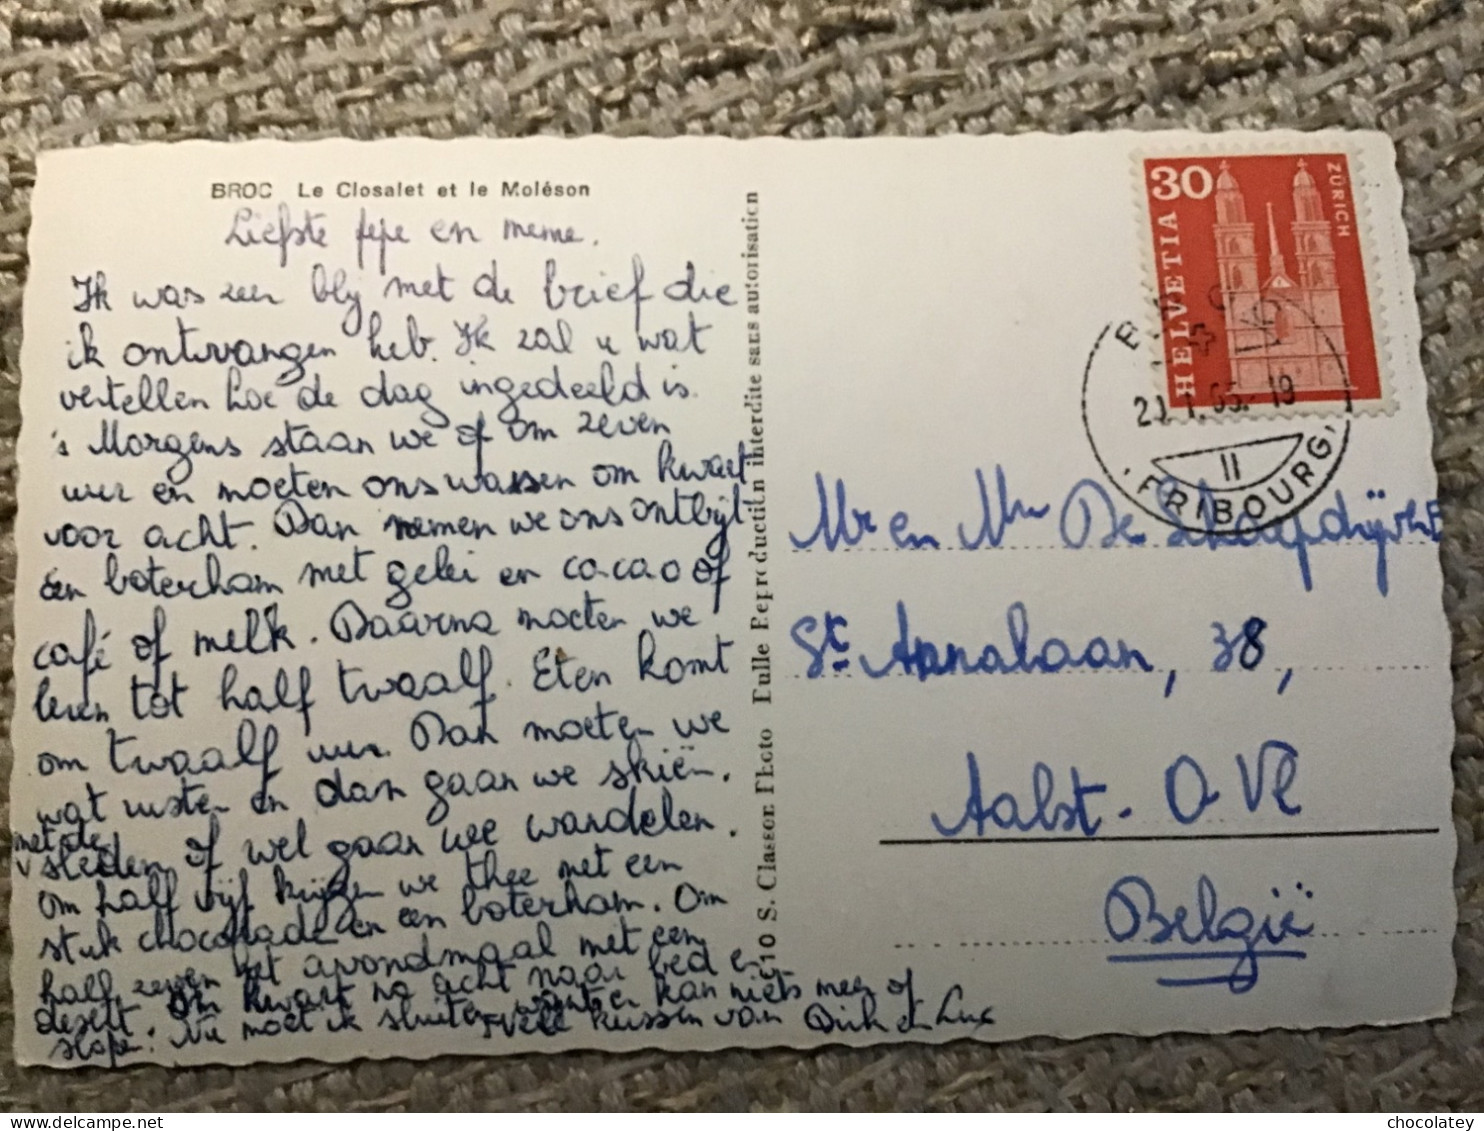 BROC Le Closalet et le Moléson
Liefste pepe en meme.
Ik was zeer blij met de brief die
ik ontvangen heb. Ik zal u wat
vertellen hoe de dag ingedeeld is.
's Morgens staan we op om zeven
uur en moeten ons wassen om kwart
voor acht. Dan nemen we ons ontbijt
een boterham met gelei en cacao of
café of melk. Daarna moeten we
leren tot half twaalf. Eten komt
om twaalf uur. Dan moeten we
wat rusten en dan gaan we skiën.
met de
v sleden of wel gaan wee wandelen.
om half vijf krijgen we thee met een
stuk chocolade en een boterham. Om
half zeven het avondmaal met een
desert. Om kwart na acht naar bed en
slapen. Nu moet ik sluiten want er kan niets meer op
Vele kussen van Dirk et Luc
510 S. Classon Photo Bulle Reproduction interdite sans autorisation
HELVETIA
30
ZÜRICH
-19
II
FRIBOURG
Mr en Mm De Schaepdrijver
St. Annalaan, 38,
Aalst - O Vl
België
chocolatey